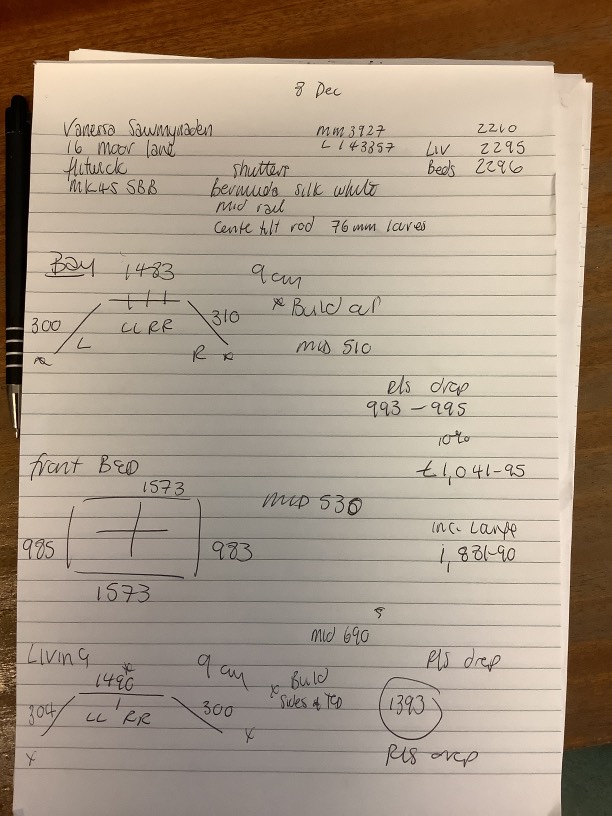 8 Dec
Vanessa Sawmynaden mm3927 2210
16 moor land L 143357 Liv 2295
flitwick shutters Beds 2296
MK45 5BB bermuda silk white
mid rail
Cente tilt rod 76mm lavres
Bay 1483 9cm
* Build out
300 310
LL RR
L R mid 510
* *
pls drop
993 - 995
10%
front BED £1,041-95
1573 mid 530
inc. Large
985 983 1,881-90
1573
mid 690
Living 9cm pls drop
1490 * Build
sides & top
304 LL RR 300 1393
x x
Pls drop